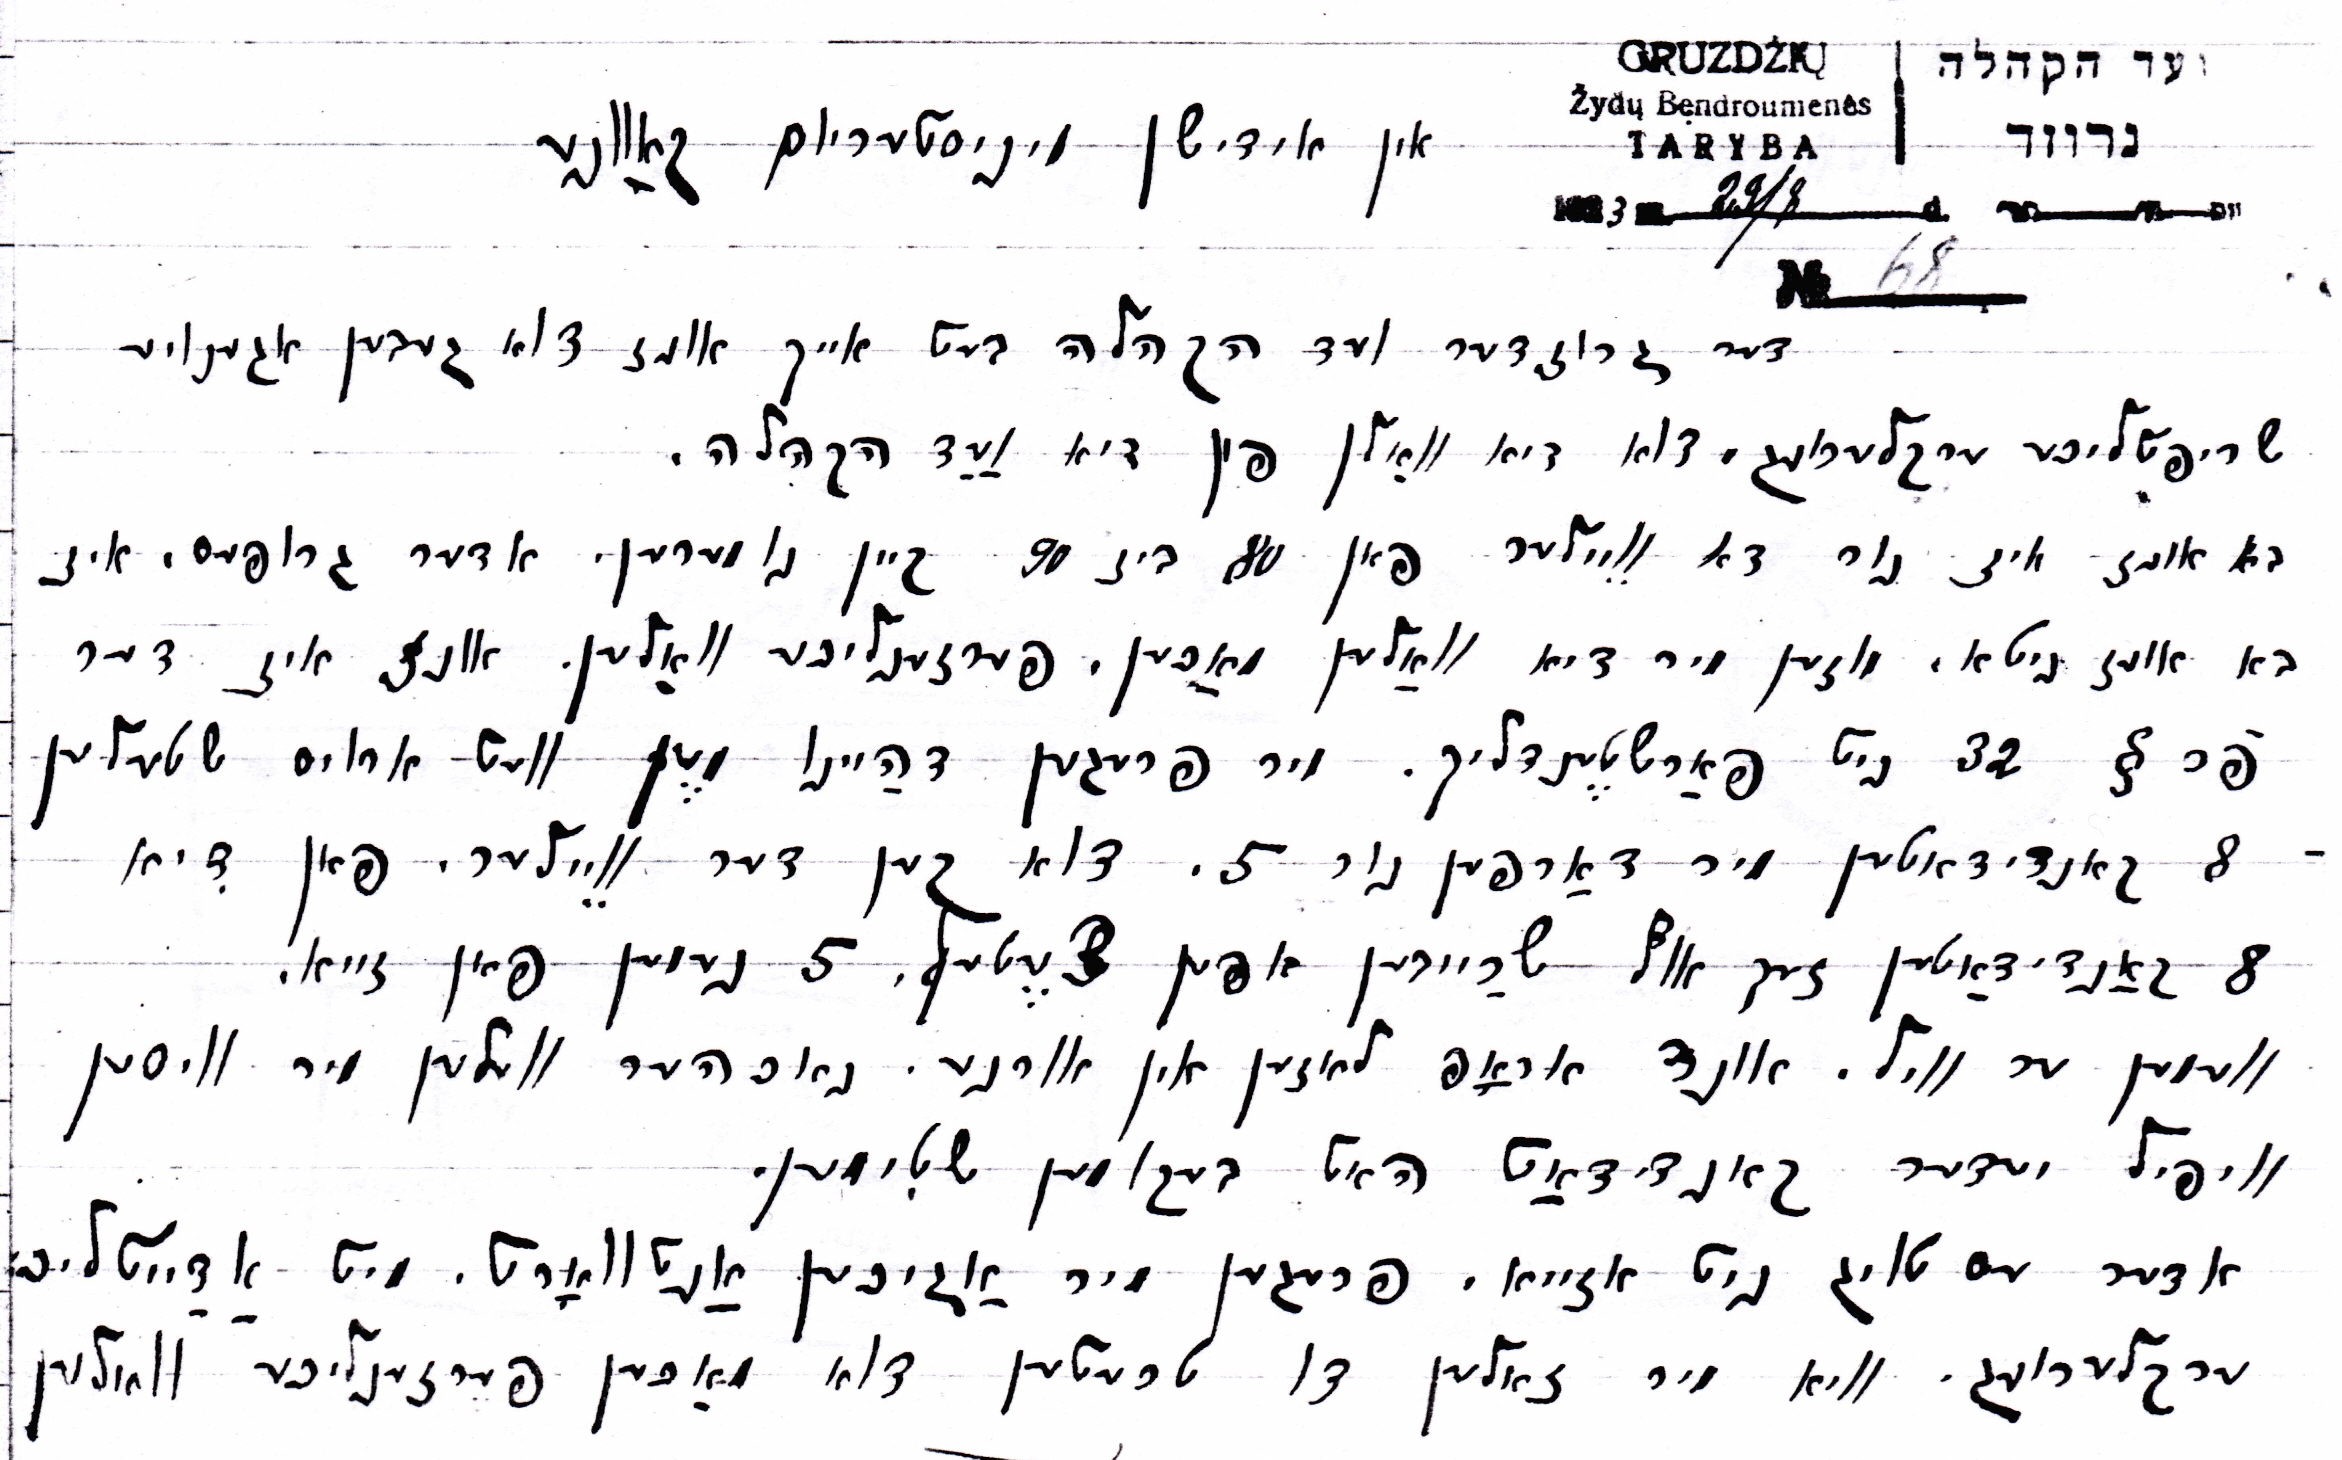 GRUZDŽIŲ
Žydų Bendroumenės
TARYBA
ועד הקהלה
גרוזד
1923 m. 29/8 d.
№ 68
אין אידישן מיניסטעריום קאַוונע
דער גרוזדער ועד הקהלה בעט אייך אונז צוא געבען אגענויע
שריפטליכע ערקלערונג, צוא דיא וואַלן פון דיא ועַד הקהלה.
בא אונז איז נור דא וויילער פאן 80 ביז 90 קיין נומערען, אדער גרופעס, איז
בא אונז ניטא, מוזען מיר דיא וואַלען מאַכען, פערזענליכע וואַלען. אונז איז דער
פר § 32 ניט פאַרשטענדליך. מיר פרעגען דהַיינו מען וועט ארויס שטעלען
8 קאנדידאטען מיר דאַרפען נור 5, צוא קען דער וויילער, פאן דיא
8 קאַנדידאַטען זיך שרַייבען אפען צעטעל, 5 נעמען פאן זייא,
וועמען ער וויל. אונד אראָפ לאזען אין אורנע, נאכהער וועלען מיר וויסען
וויפיל יעדער קאנדידאַט האט בעקומען שטימען.
אדער עס טויג ניט אזייא, פרעגען מיר אַגיכען אַנטוואָרט, מיט אַ דַייטליכע
ערקלערונג, וויא מיר זאלען צו טרעטען צוא מאַכען פערזענליכע וואלען